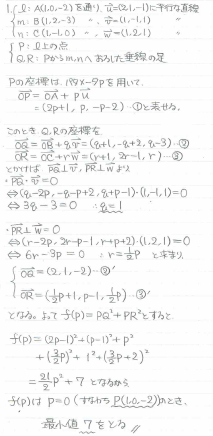 1. l: A(1,0,-2)を通り, u=(2,1,-1)に平行な直線
m: B(1,2,-3) 〃, v=(1,-1,1) 〃
n: C(1,-1,0) 〃, w=(1,2,1) 〃
P: l上の点
Q,R: Pからm,nへおろした垂線の足
Pの座標は, 実数pを用いて,
OP = OA + pu
= (2p+1, p, -p-2) ①と表せる.
このとき Q,Rの座標を
OQ = OB + qv = (q+1, -q+2, q-3) ②
OR = OC + rw = (r+1, 2r-1, r) ③
とかけば PQ⊥v, PR⊥w より
・PQ・v = 0
⇔ (q-2p, -q-p+2, q+p-1)・(1,-1,1)=0
⇔ 3q-3=0 ∴ q=1
・PR⊥w = 0
⇔ (r-2p, 2r-p-1, r+p+2)・(1,2,1)=0
⇔ 6r-3p=0 ∴ r=1/2p と求まり,
OQ = (2,1,-2) ②'
OR = (1/2p+1, p-1, 1/2p) ③'
となる. よって f(p)=PQ²+PR²とすると
f(p) = (2p-1)²+(p-1)²+p²
+(3/2p)²+1²+(3/2p+2)²
= 21/2p²+7 となるから
f(p)は p=0 (すなわち P(1,0,-2))のとき,
最小値 7 をとる //